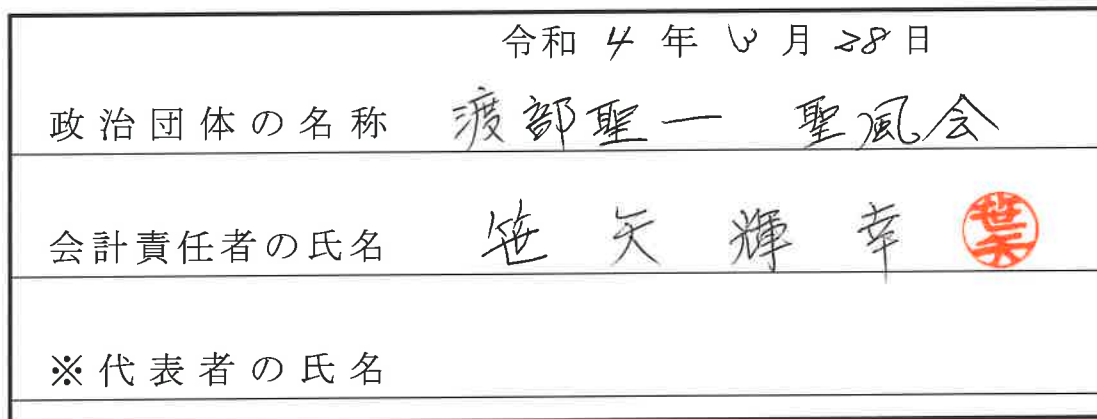 令和 4 年 3 月 28 日
政治団体の名称 渡部聖一 聖風会
会計責任者の氏名 笹矢輝幸 笹矢
※代表者の氏名